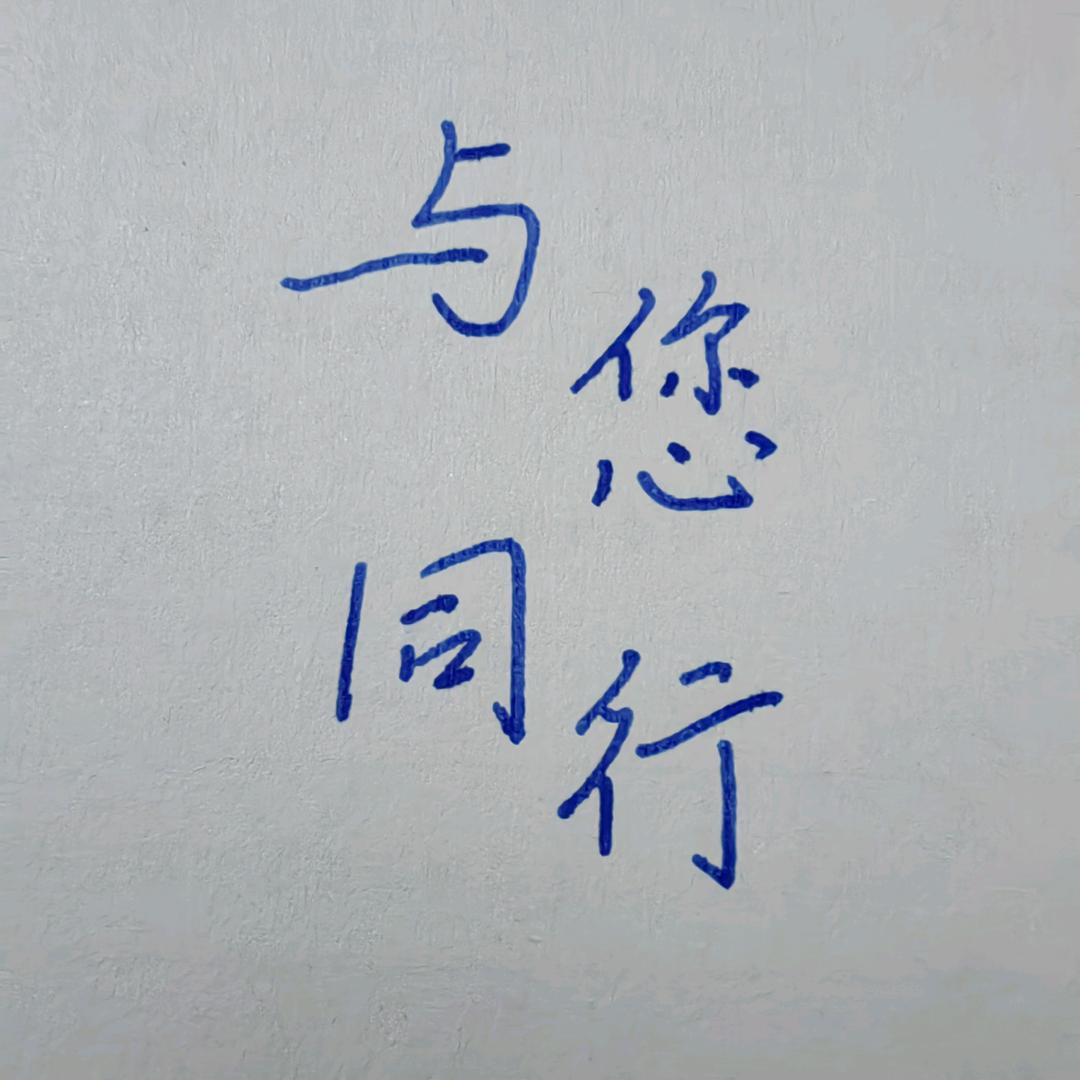 与
您
同
行